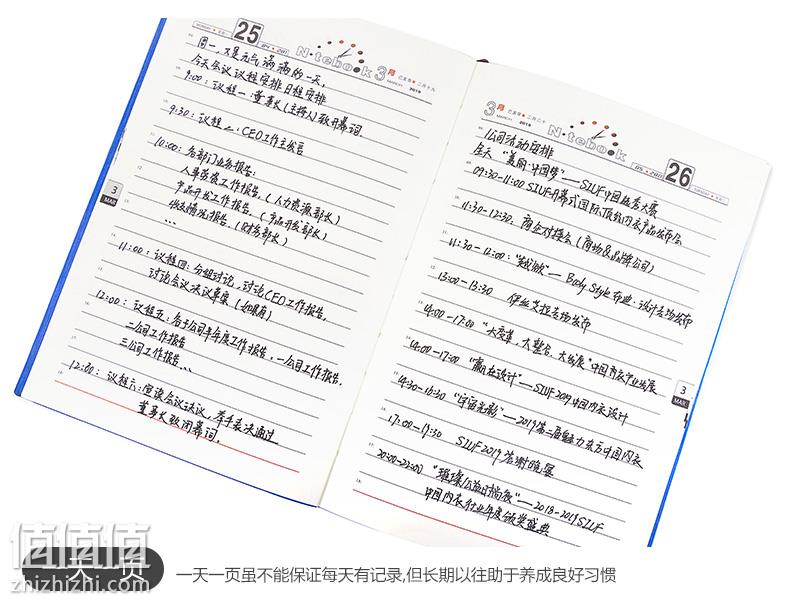 25
3月
Notebook
MARCH 2019
周一，又是元气满满的一天，
今天会议议程安排日程安排
9:00: 议程一：董事长(主持人)致开幕词
9:30: 议程二：CEO工作主发言
10:00: 各部门业务报告:
人事发展工作报告。(人力资源部长)
产品开发工作报告。(产品开发部长)
收支情况报告。(财务部长)
...
11:00: 议程四: 分组讨论，讨论CEO工作报告，
讨论会议决议草案 (如果有)
12:00: 议程五: 各子公司半年度工作报告，一公司工作报告，
二公司工作报告
三公司工作报告...
12:30: 议程六: 宣读会议决议，举手表决通过
董事长致闭幕词。
3
MAR
3月
己亥年 二月二十
MARCH 2019
Notebook
26
公司活动安排
全天 "美丽·中国梦"—SIUF中国超模大赛
09:30-11:00 SIUF开幕式国际顶级内衣产品发布会
11:30-12:30: 商企对接会 (商场&品牌公司)
11:30-12:00: — Body Style 布迪·设计专场发布
13:00-13:30 伊丝艾拉专场发布
14:00-17:00 "大变革、大整合、大发展"中国内衣产业发展
14:00-17:00 "赢在设计"—SIUF2019中国内衣设计
14:30-16:30 —2019第二届魅力东方中国内衣
17:00-19:30 SIUF2019答谢晚宴
20:00-22:00 —2018-2019SIUF
中国内衣行业年度颁奖盛典
3
MAR
一天一页
值值值
zhizhizhi.com
一天一页虽不能保证每天有记录,但长期以往助于养成良好习惯